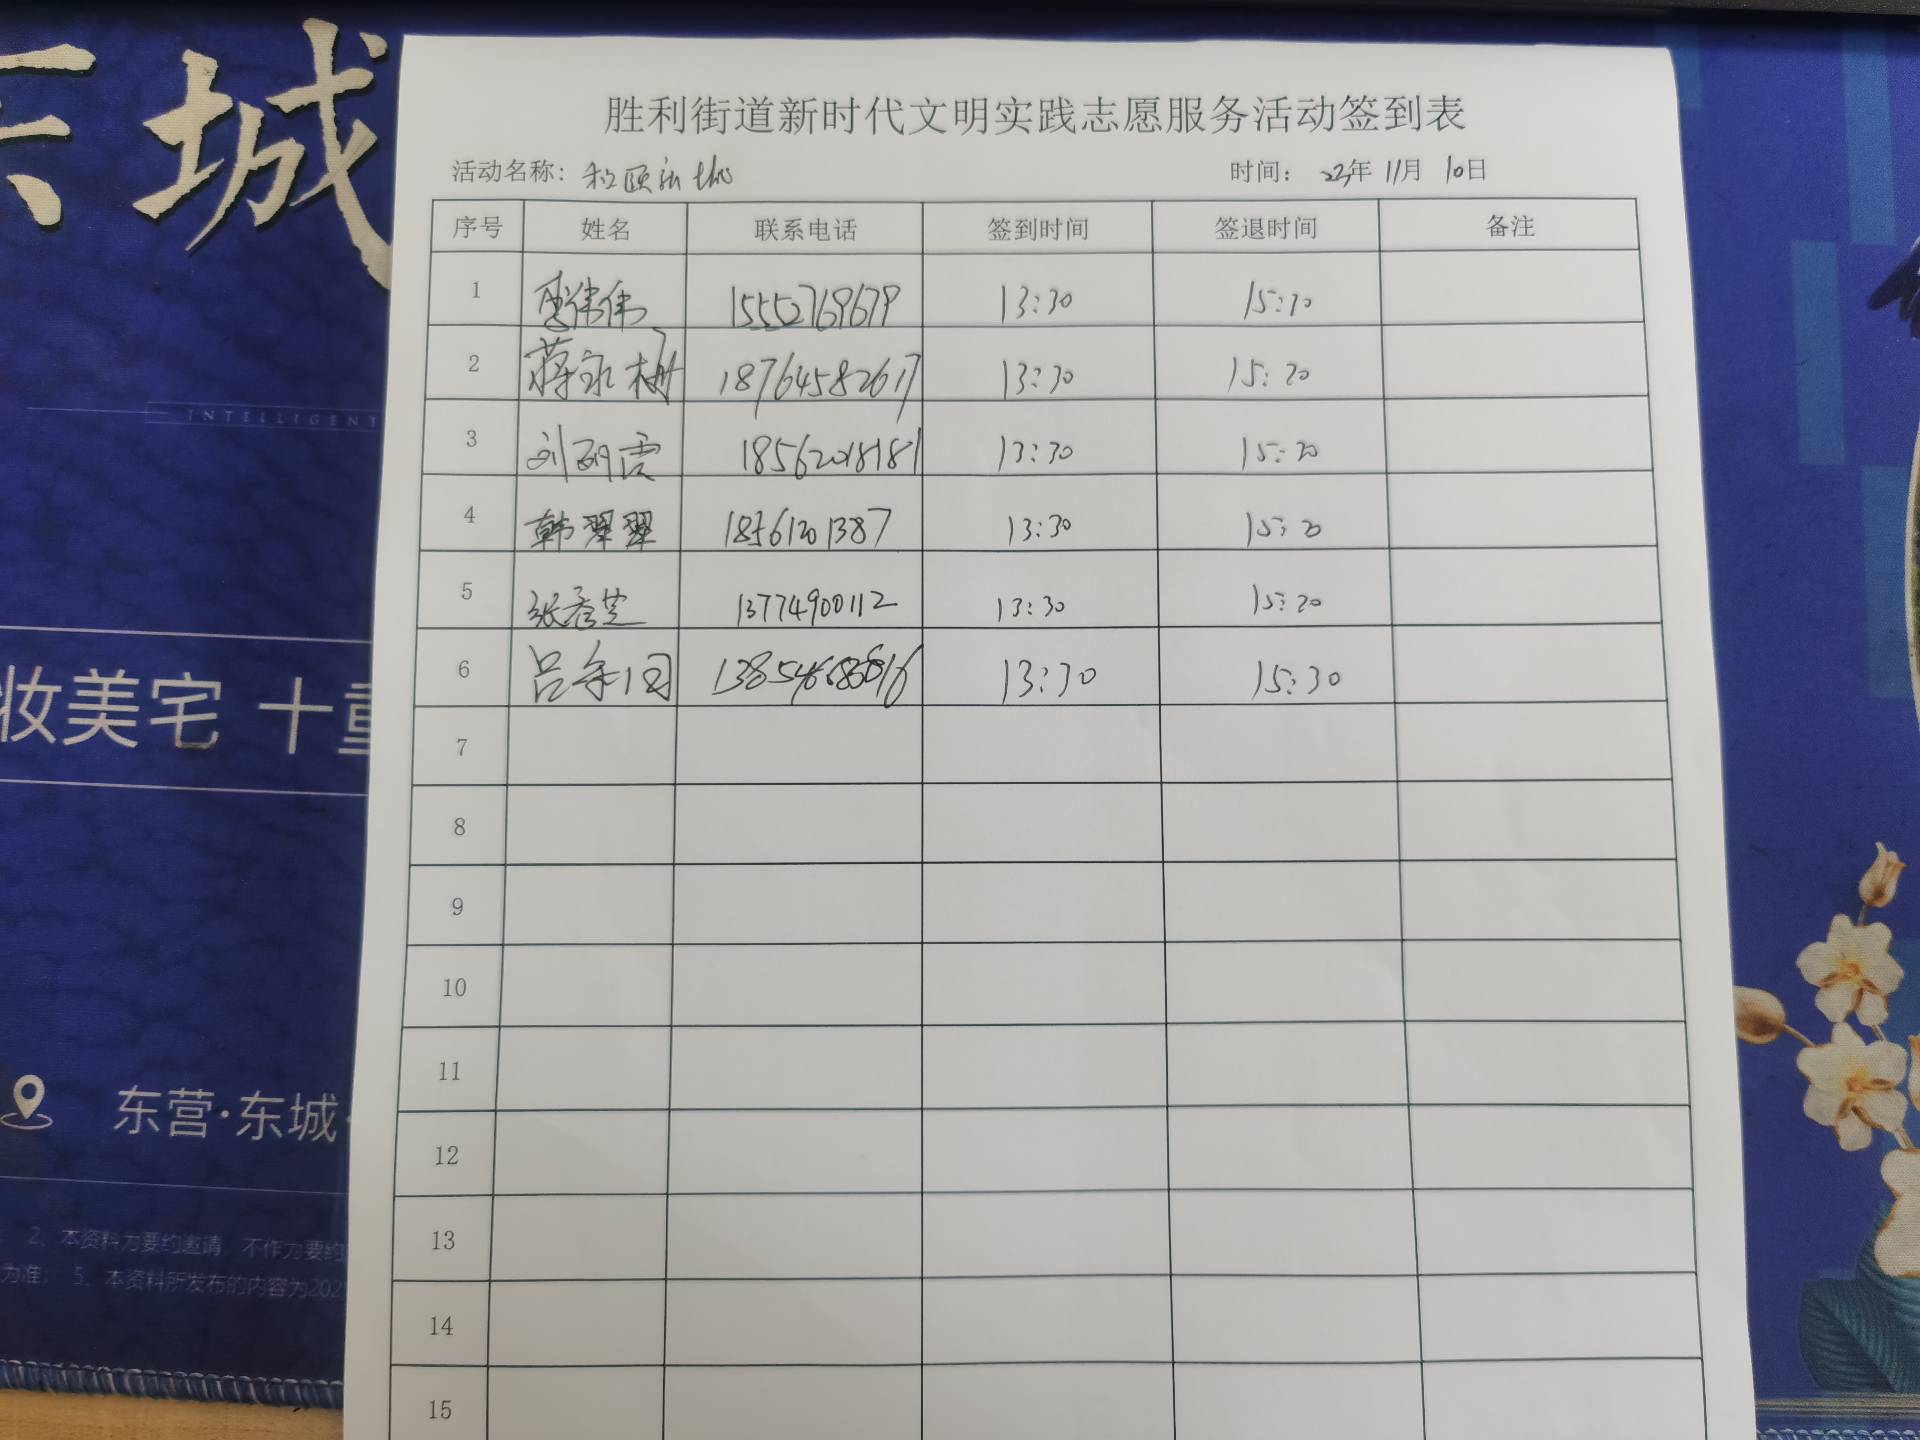 东城
INTELLIGENT
妆美宅 十重
东营·东城
2、本资料为要约邀请 不作为要约
为准; 5、本资料所发布的内容为202
胜利街道新时代文明实践志愿服务活动签到表
活动名称: 和颐新城 时间: 22年 11月 10日
序号 姓名 联系电话 签到时间 签退时间 备注
1 李伟伟 15552769679 13:30 15:30
2 蒋永梅 18764582617 13:30 15:30
3 刘丽霞 18562018181 13:30 15:30
4 韩翠翠 18561201387 13:30 15:30
5 张春芝 13774900112 13:30 15:30
6 吕 13:30 15:30
7
8
9
10
11
12
13
14
15